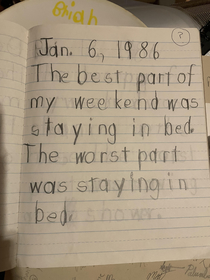 Brian
?
Jan. 6, 1986
The best part of
my weekend was
staying in bed.
The worst part
was staying in
bed.